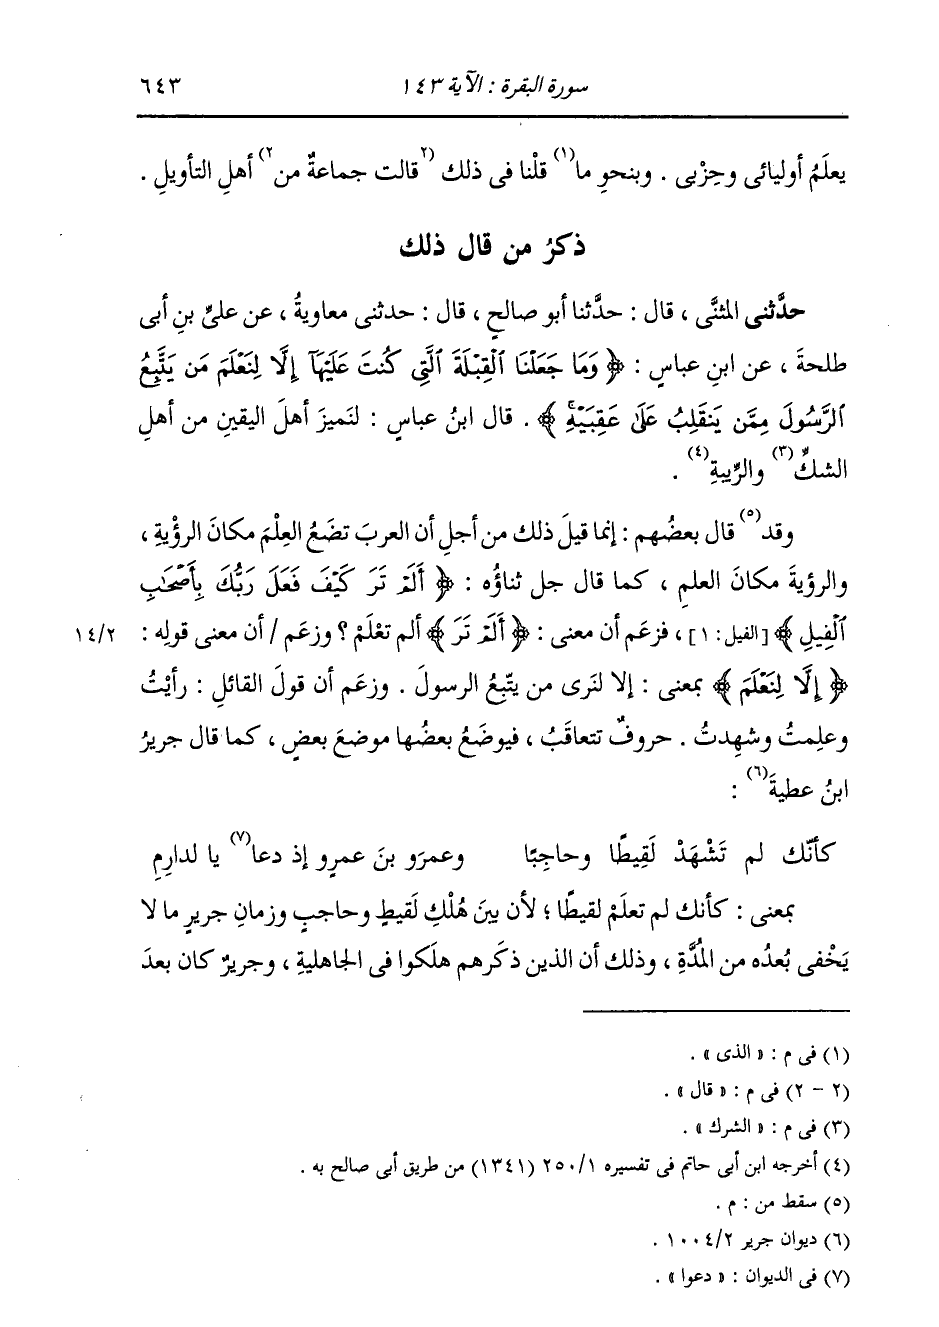 سورة البقرة : الآية ١٤٣ ٦٤٣
يعلَمُ أوليائى وحِزْبى . وبنحوِ ما(١) قلْنا فى ذلك (٢قالت جماعةٌ من٢) أهلِ التأويلِ .
ذكرُ من قال ذلك
حدَّثنى المثنَّى ، قال : حدَّثنا أبو صالحٍ ، قال : حدثنى معاويةُ ، عن علىِّ بنِ أبى
طلحةَ ، عن ابنِ عباسٍ : ﴿ وَمَا جَعَلْنَا ٱلْقِبْلَةَ ٱلَّتِى كُنتَ عَلَيْهَآ إِلَّا لِنَعْلَمَ مَن يَتَّبِعُ
ٱلرَّسُولَ مِمَّن يَنقَلِبُ عَلَىٰ عَقِبَيْهِۚ ﴾ . قال ابنُ عباسٍ : لنَميزَ أهلَ اليقينِ من أهلِ
الشكِّ(٣) والرِّيبةِ(٤) .
وقد(٥) قال بعضُهم : إنما قيلَ ذلك من أجلِ أن العربَ تضَعُ العِلْمَ مكانَ الرؤْيةِ ،
والرؤيةَ مكانَ العلمِ ، كما قال جل ثناؤُه : ﴿ أَلَمْ تَرَ كَيْفَ فَعَلَ رَبُّكَ بِأَصْحَٰبِ
ٱلْفِيلِ ﴾ [الفيل : ١] ، فزعَم أن معنى : ﴿ أَلَمْ تَرَ ﴾ ألم تعْلَمْ ؟ وزعَم / أن معنى قولِه : ١٤/٢
﴿ إِلَّا لِنَعْلَمَ ﴾ بمعنى : إلا لنَرى من يتّبِعُ الرسولَ . وزعَم أن قولَ القائلِ : رأيْتُ
وعلِمتُ وشهِدتُ . حروفٌ تتعاقَبُ ، فيوضَعُ بعضُها موضعَ بعضٍ ، كما قال جريرُ
ابنُ عطيةَ(٦) :
كأنّك لم تَشْهَدْ لَقِيطًا وحاجِبًا وعمرَو بنَ عمرٍو إذ دعا(٧) يا لدارِمِ
بمعنى : كأنك لم تعلَمْ لقيطًا ؛ لأن بينَ هُلْكِ لَقيطٍ وحاجبٍ وزمانِ جريرٍ ما لا
يَخْفى بُعدُه من المُدَّةِ ، وذلك أن الذين ذكَرهم هلَكوا فى الجاهليةِ ، وجريرٌ كان بعدَ
(١) فى م : « الذى » .
(٢ - ٢) فى م : « قال » .
(٣) فى م : « الشرك » .
(٤) أخرجه ابن أبى حاتم فى تفسيره ٢٥٠/١ (١٣٤١) من طريق أبى صالح به .
(٥) سقط من : م .
(٦) ديوان جرير ١٠٠٤/٢ .
(٧) فى الديوان : « دعوا » .